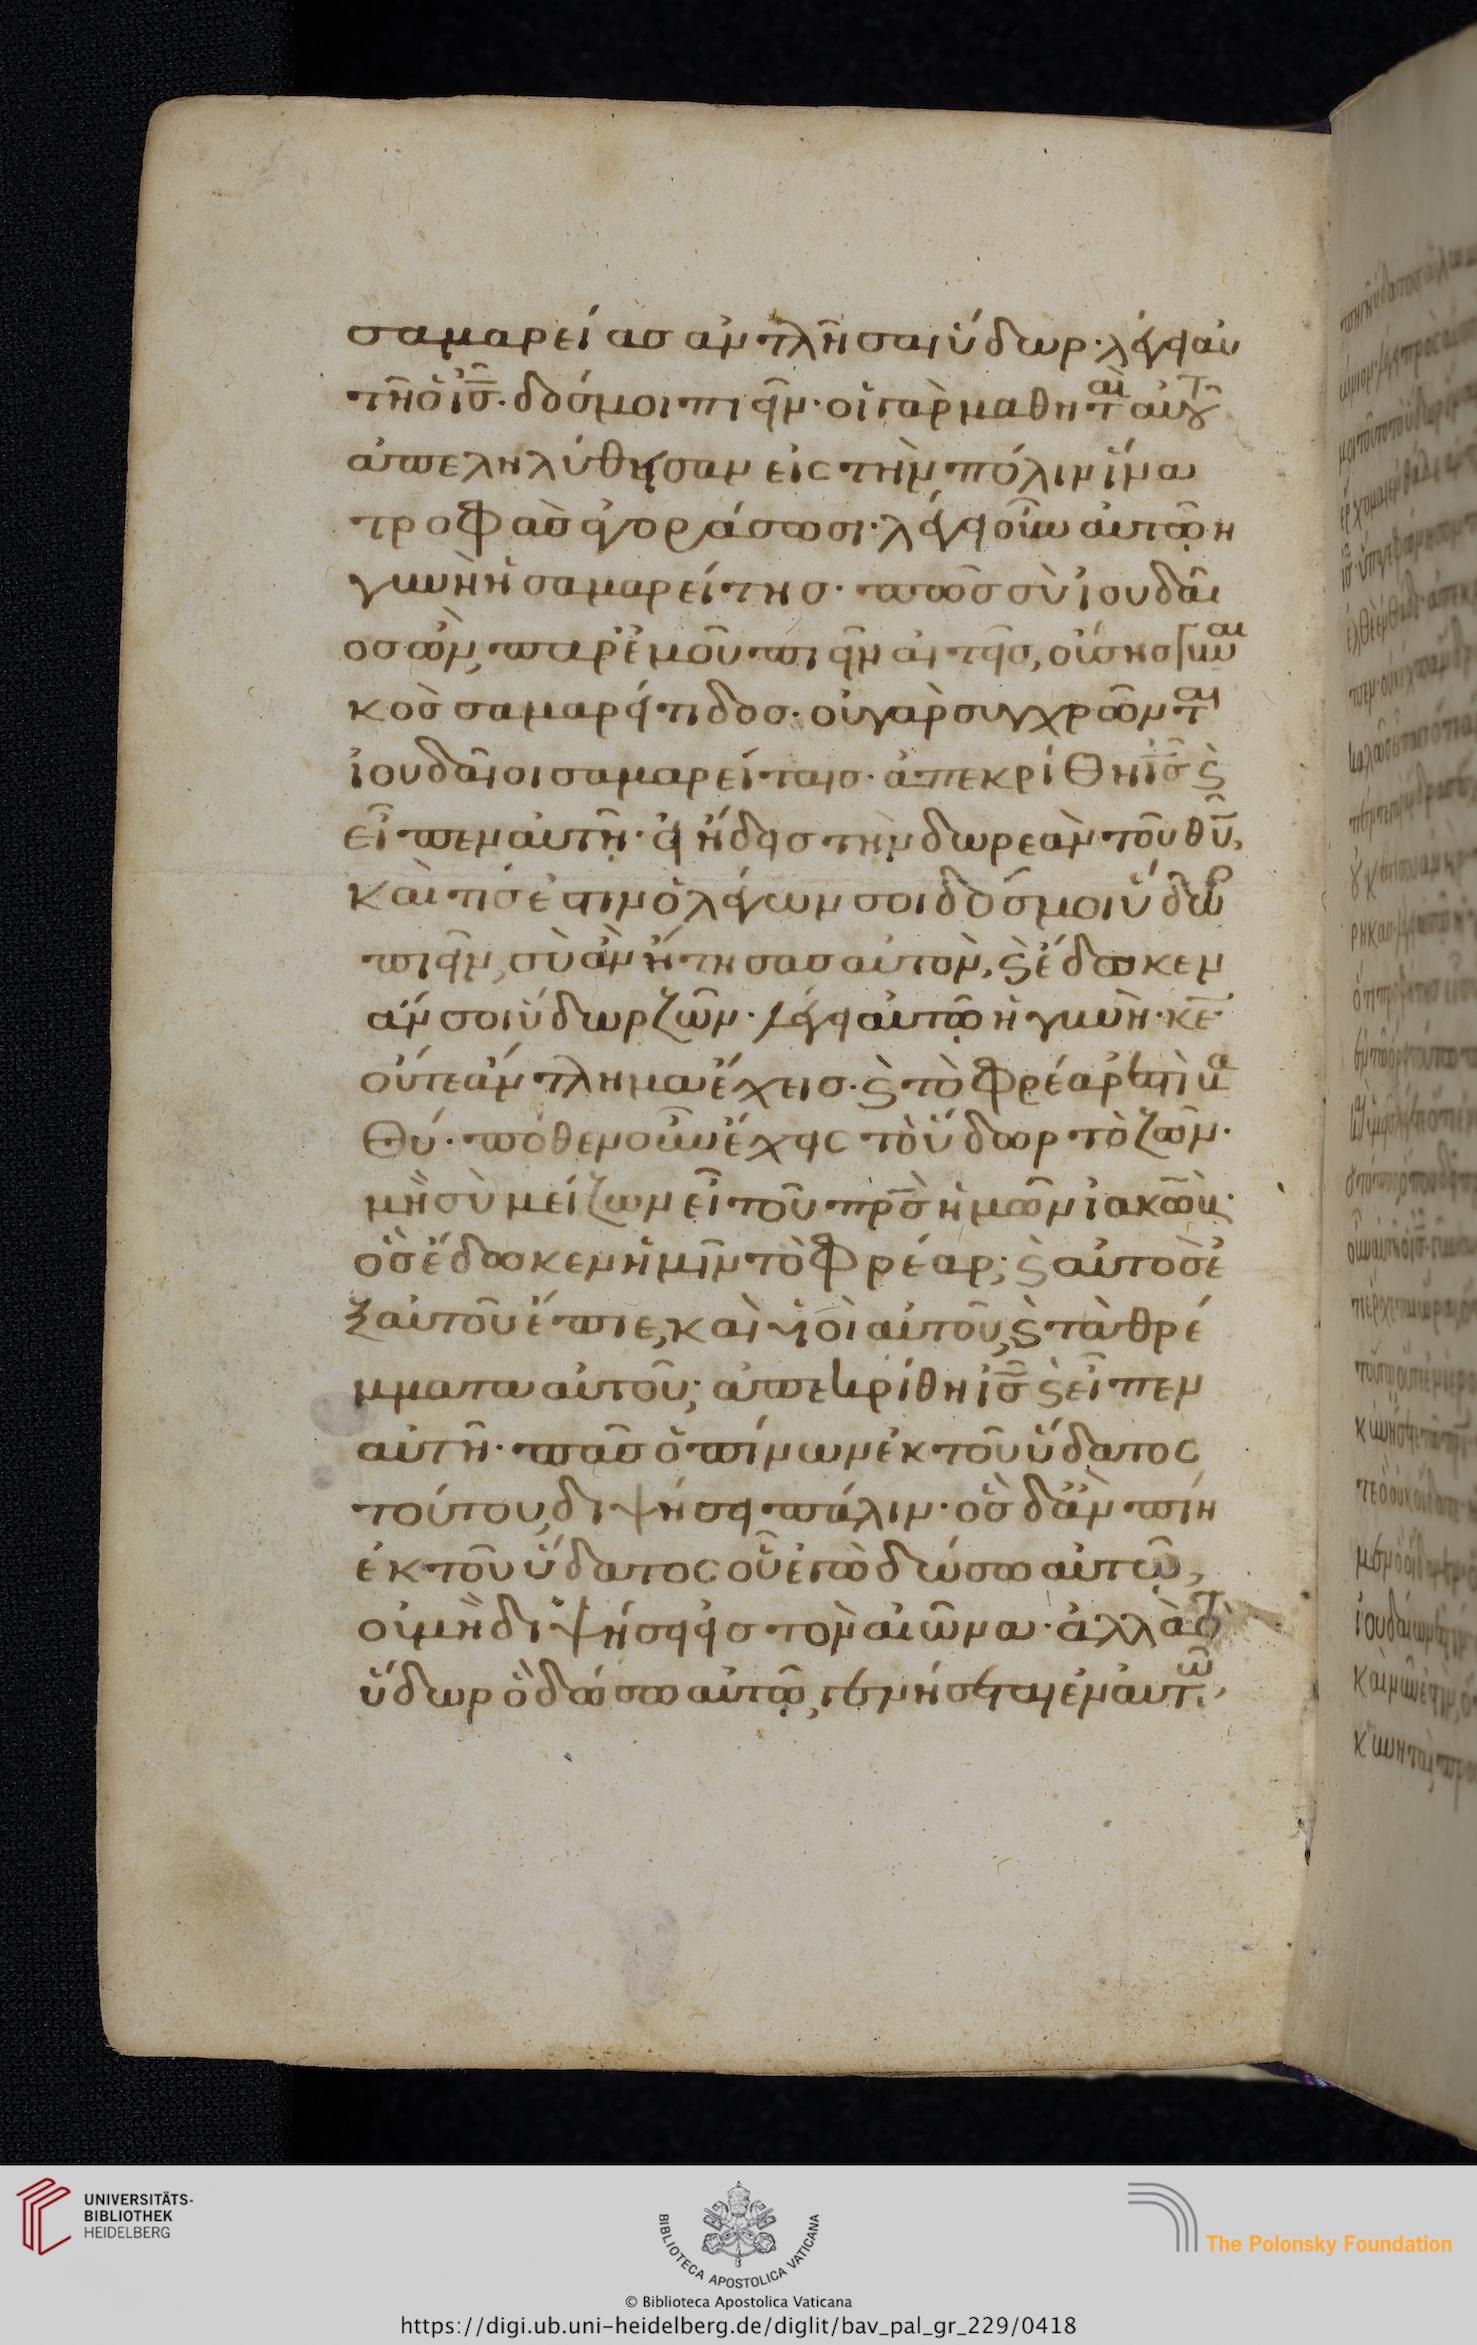 σαμαρείας ἀντλῆσαι ὕδωρ· λέγει αὐ
τῆ ὁ ἰς̅· δός μοι πιεῖν· οἱ γὰρ μαθηταὶ αὐτοῦ
ἀπεληλύθησαν εἰς τὴν πόλιν ἵνα
τροφὰς ἀγοράσωσι· λέγει οὖν αὐτῷ ἡ
γυνὴ ἡ σαμαρείτης· πῶς σὺ ἰουδαῖ
ος ὢν, παρ' ἐμοῦ πιεῖν αἰτεῖς, οὔσης γυναι
κὸς σαμαρείτιδος· οὐ γὰρ συγχρῶνται
ἰουδαῖοι σαμαρείταις· ἀπεκρίθη ἰς̅ ϗ
εἶπεν αὐτῆ· εἰ ἤδεις τὴν δωρεὰν τοῦ θυ̅,
καὶ τίς ἐστιν ὁ λέγων σοι δός μοι ὕδωρ
πιεῖν, σὺ ἂν ἤτησας αὐτὸν, ϗ ἔδωκεν
ἄν σοι ὕδωρ ζῶν· λέγει αὐτῷ ἡ γυνὴ· κε̅·
οὔτε ἄντλημα ἔχεις· ϗ τὸ φρέαρ ἐστὶ βα
θύ· πόθεν οὖν ἔχεις τὸ ὕδωρ τὸ ζῶν·
μὴ σὺ μείζων εἶ τοῦ πρς̅ ἡμῶν ἰακὼβ·
ὃς ἔδωκεν ἡμῖν τὸ φρέαρ; ϗ αὐτὸς ἐ
ξ αὐτοῦ ἔπιε, καὶ ὑιοὶ αὐτοῦ, ϗ τὰ θρέ
μματα αὐτοῦ; ἀπεκρίθη ἰς̅ ϗ εἶπεν
αὐτῆ· πᾶς ὁ πίνων ἐκ τοῦ ὕδατος
τούτου, διψήσει πάλιν· ὃς δ' ἂν πίη
ἐκ τοῦ ὕδατος οὗ ἐγὼ δώσω αὐτῷ,
οὐ μὴ διψήσει εἰς τὸν αἰῶνα· ἀλλὰ τὸ
ὕδωρ ὃ δώσω αὐτῷ, γενήσεται ἐν αὐτῶ,
UNIVERSITÄTS-
BIBLIOTHEK
HEIDELBERG
BIBLIOTECA APOSTOLICA VATICANA
The Polonsky Foundation
© Biblioteca Apostolica Vaticana
https://digi.ub.uni-heidelberg.de/diglit/bav_pal_gr_229/0418